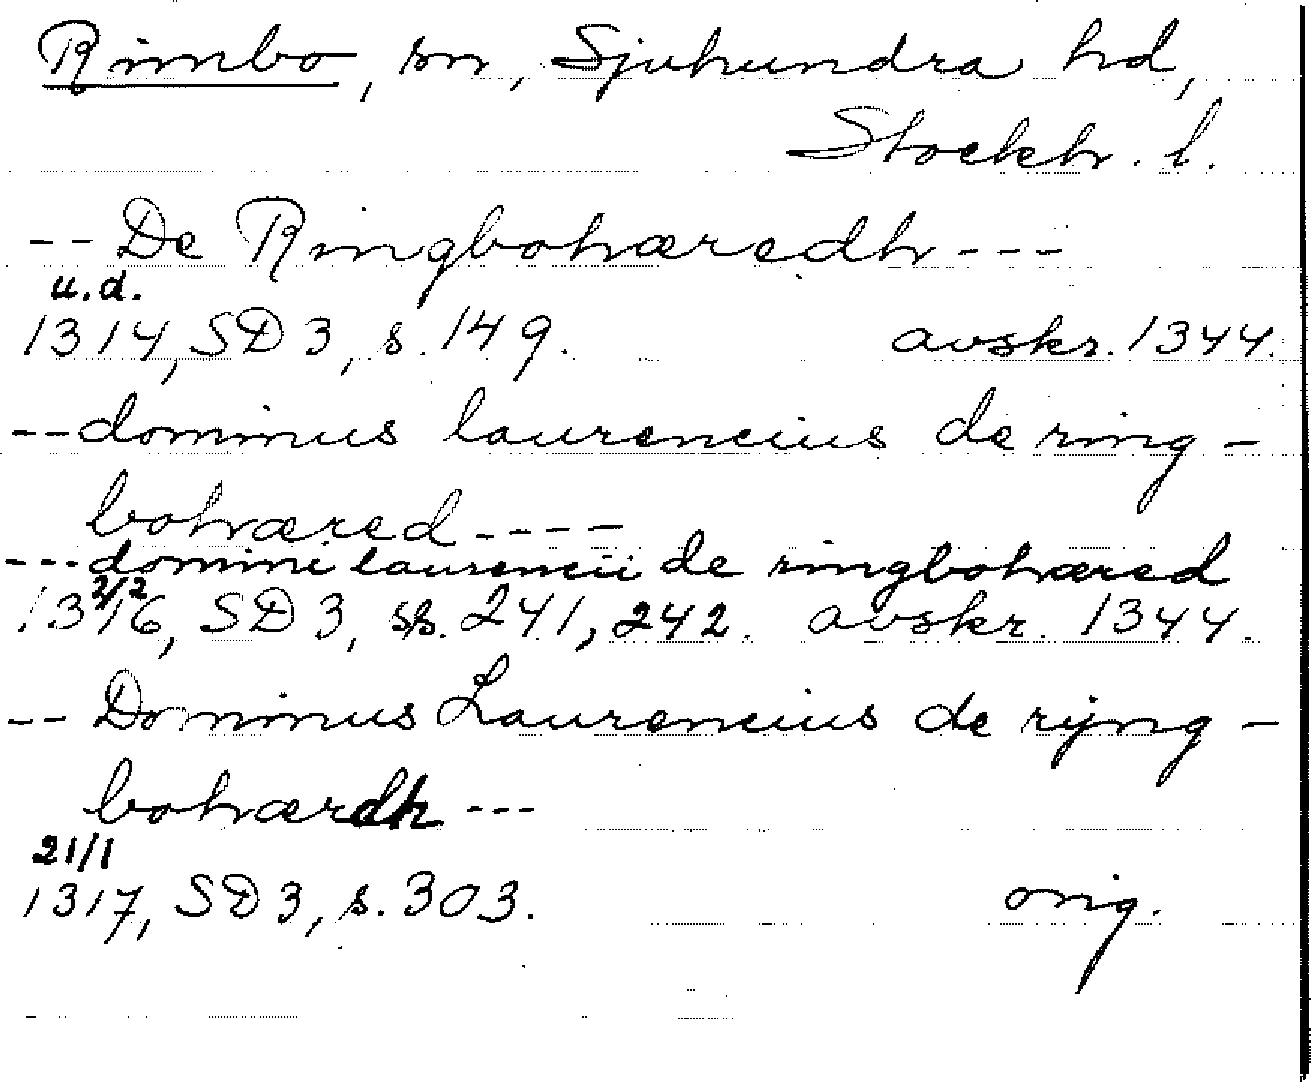 Rimbo, sn, Sjuhundra hd,
Stockh. l.
-- De Ringbohæredh ---
u.d.
1314, SD 3, s. 149. avskr. 1344.
-- dominus laurencius de ring-
bohæred ----
--- domini laurencii de ringbohæred
2/2
1316, SD 3, ss. 241, 242. avskr. 1344.
-- Dominus Laurencius de rijng-
bohærdh ---
21/1
1317, SD 3, s. 303. orig.